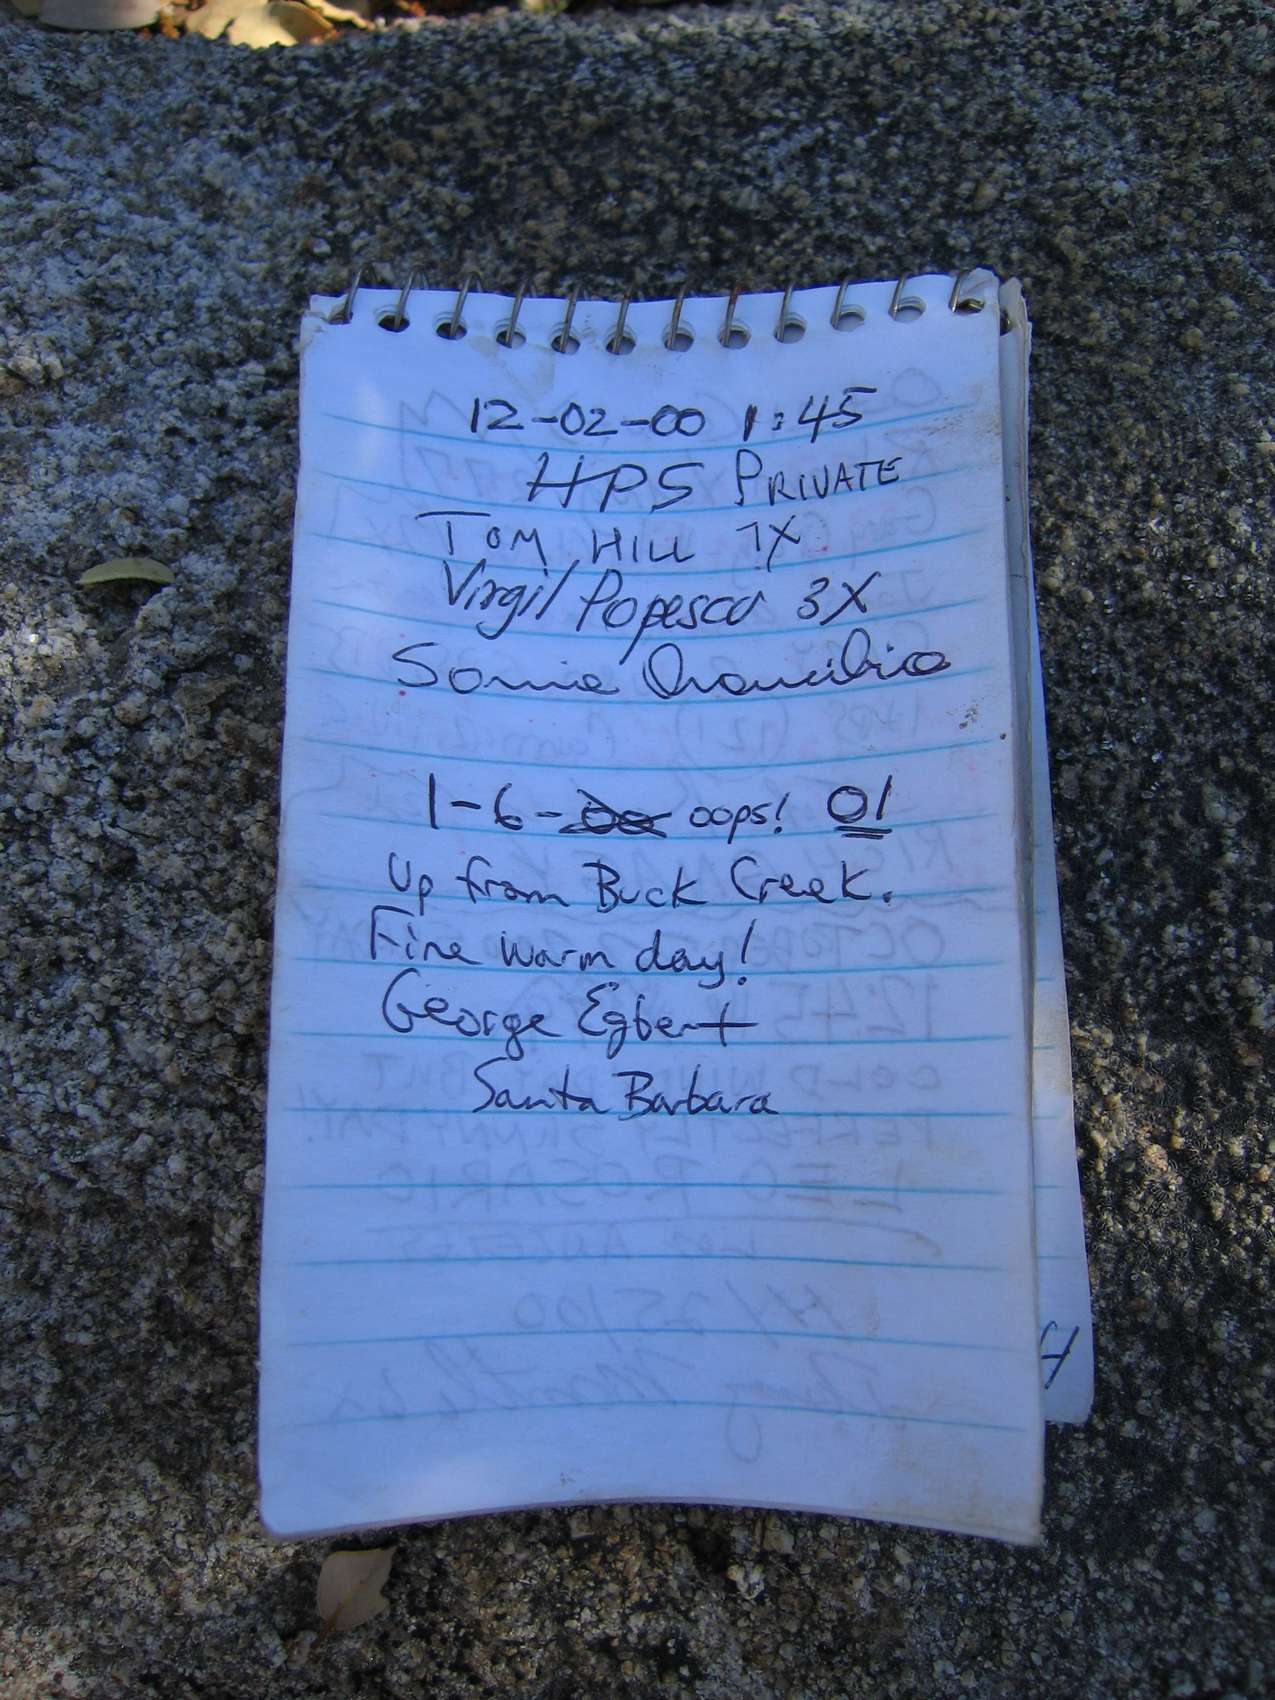 12-02-00 1:45
HPS PRIVATE
TOM HILL 7X
Virgil Popescu 3X
Sonia
1-6-00 oops! 01
Up from Buck Creek.
Fine warm day!
George Egbert
Santa Barbara